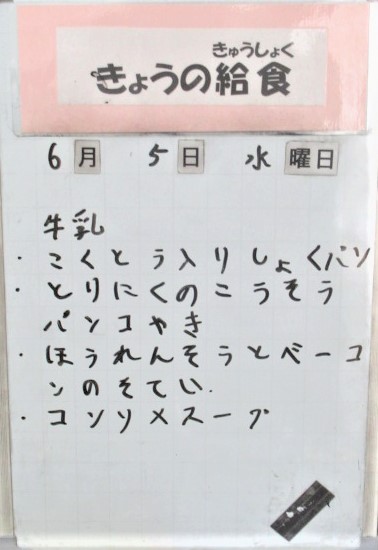 きゅうしょく
きょうの給食
6月 5日 水曜日
牛乳
・こくとう入りしょくパン
・とりにくのこうそう
パンコやき
・ほうれんそうとベーコ
ンのそてい.
・コンソメスープ